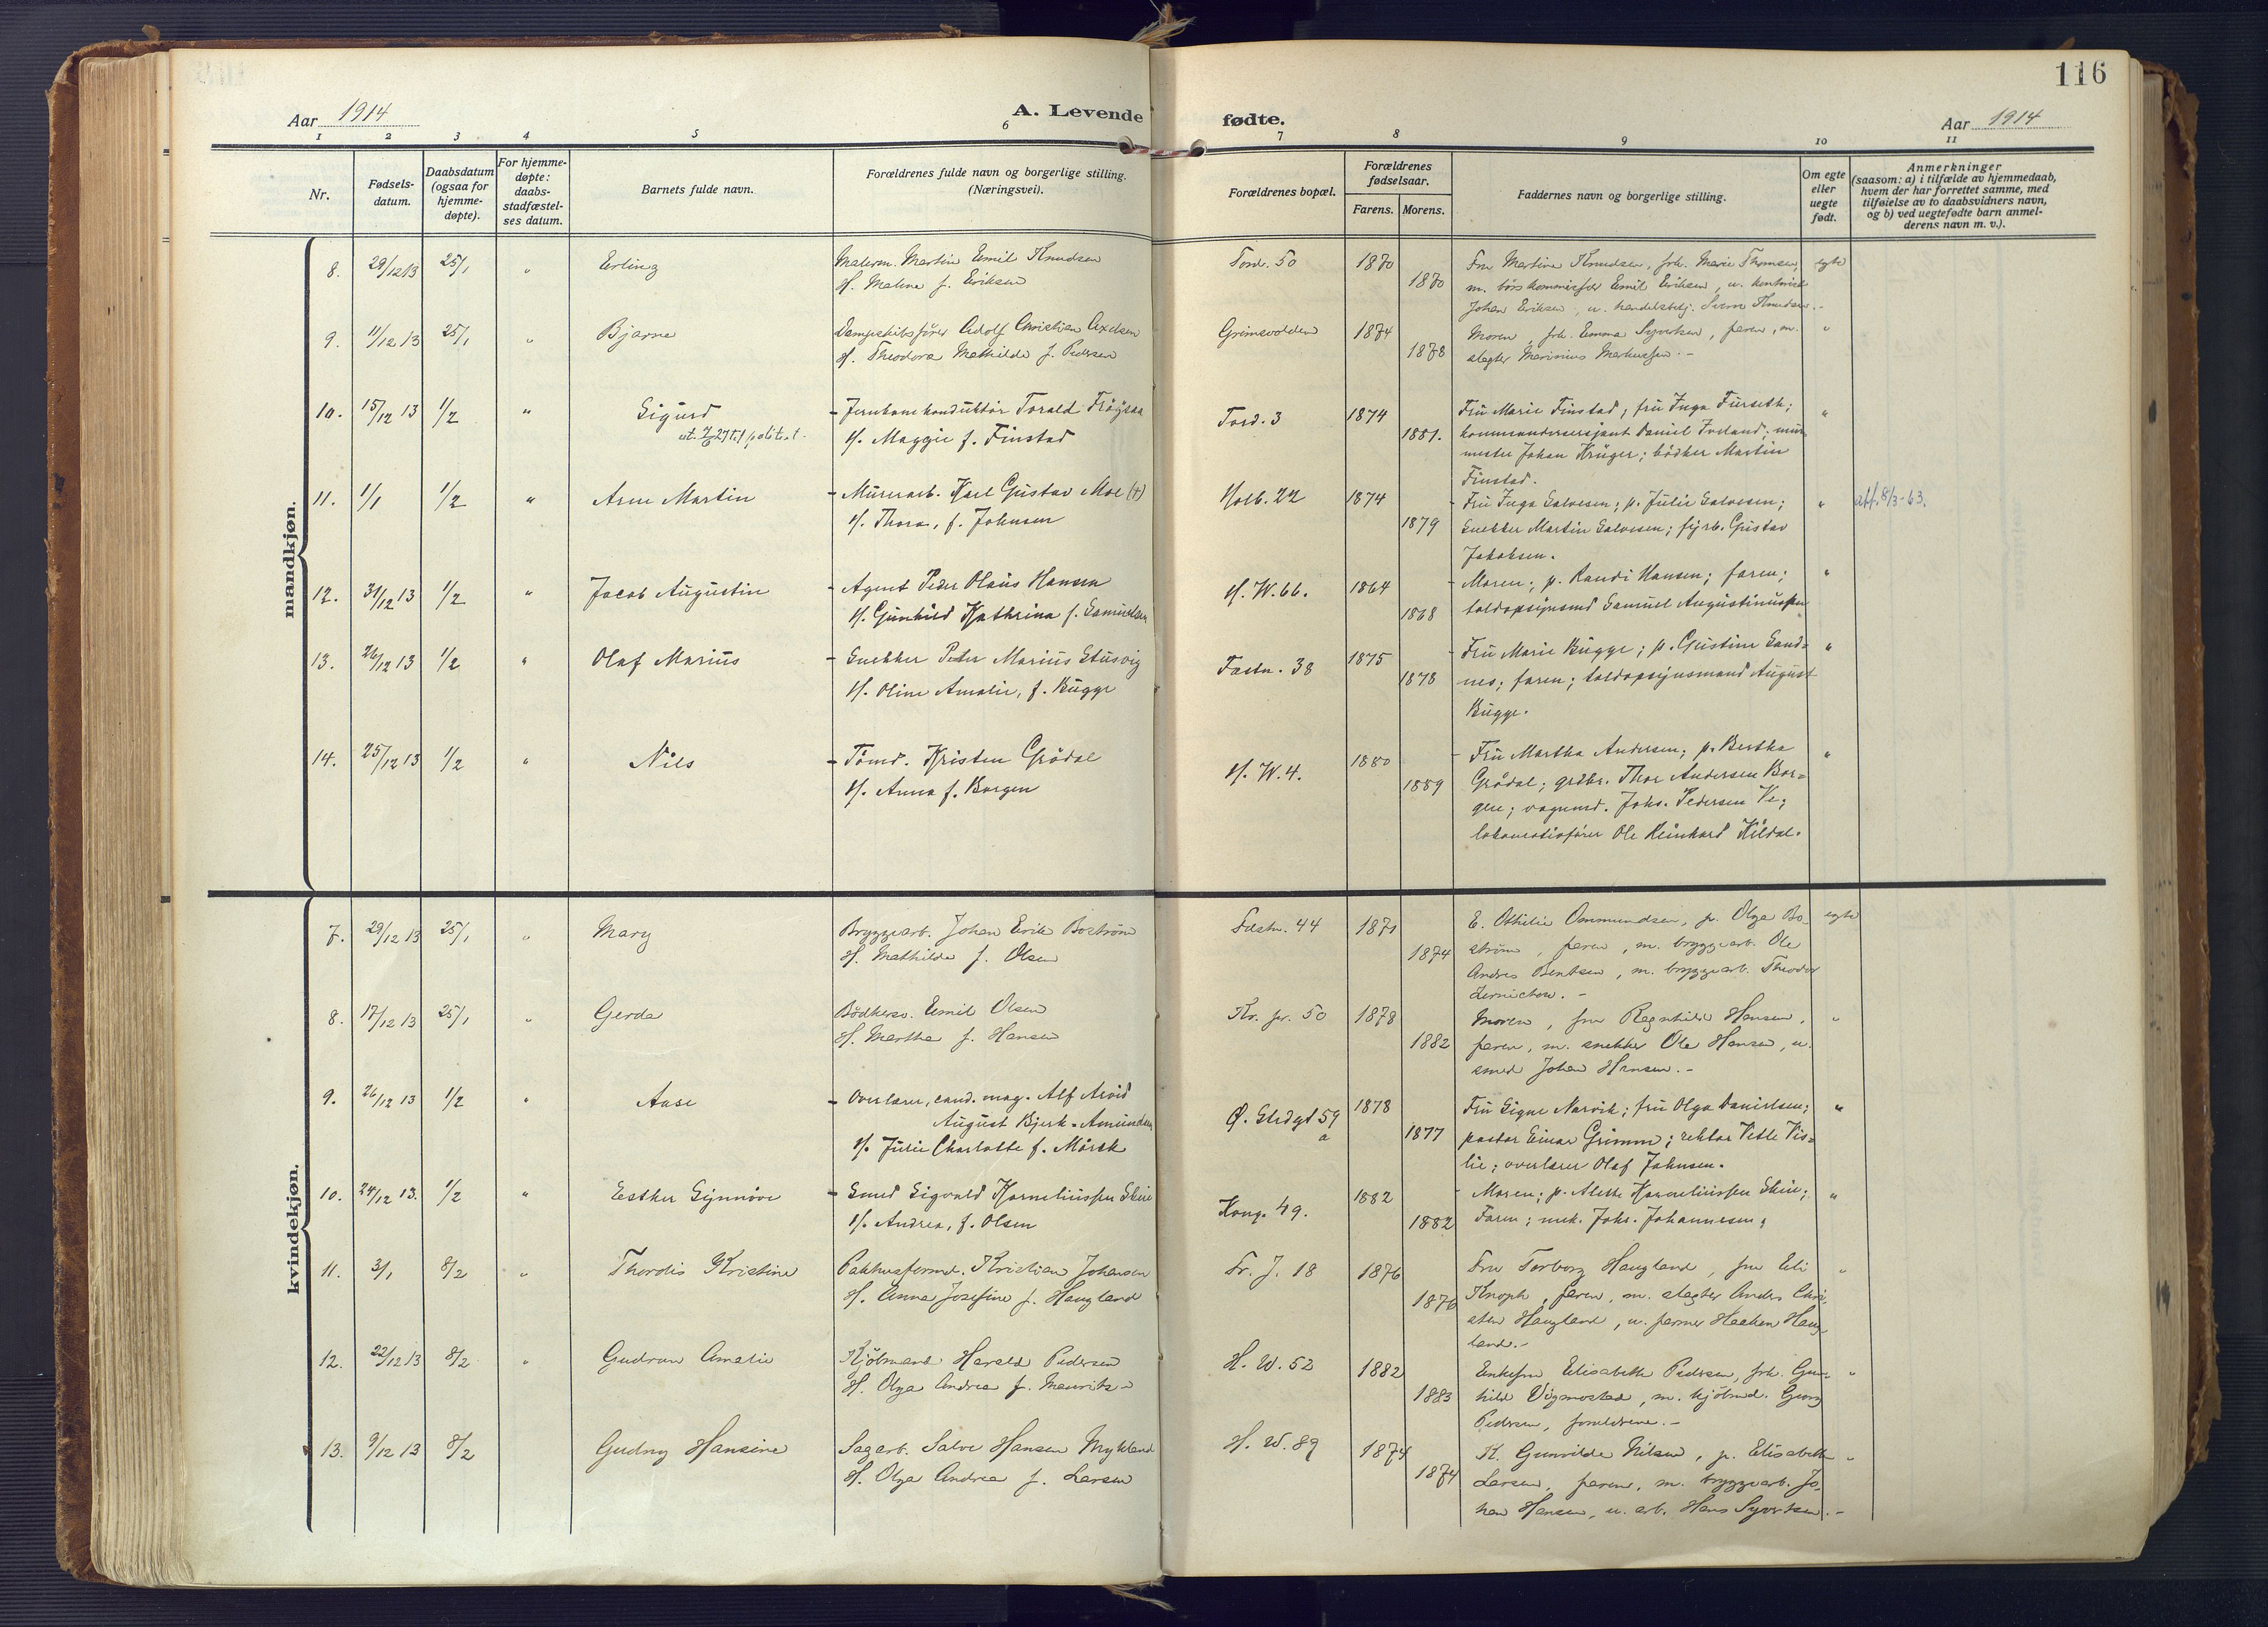 116
Aar 1914
A. Levende fødte.
Aar 1914
1 2 3 4 5 6 7 8 9 10 11
Nr.
Fødsels-
datum.
Daabsdatum
(ogsaa for
hjemme-
døpte).
For hjemme-
døpte:
daabs-
stadfæstel-
ses datum.
Barnets fulde navn.
Forældrenes fulde navn og borgerlige stilling.
(Næringsvei).
Forældrenes bopæl.
Forældrenes
fødselsaar.
Farens. Morens.
Faddernes navn og borgerlige stilling.
Om egte
eller
uegte
født.
Anmerkninger
(saasom: a) i tilfælde av hjemmedaab,
hvem der har forrettet samme, med
tilføielse av to daabsvidners navn,
og b) ved uegtefødte barn anmel-
derens navn m. v.).
mandkjøn.
8. 29/12 13 25/1 " Erling
Malerm. Martin Emil Knudsen
H. Malene f. Eriksen
Tord. 50 1870 1870
Fru Martine Knudsen, frk. Marie Thomsen,
m. børskommissær Emil Eriksen, u. kontorist
Johan Eriksen, u. handelsbetj. Sverre Knudsen.-
egte
9. 11/12 13 25/1 " Bjarne
Dampskibsfører Adolf Christian Axelsen
H. Theodora Mathilde f. Pedersen
Grimsvolden 1874 1878
Moren, frk. Emma Syvertsen, faren, m.
slagter Marinius Markussen.-
"
10. 15/12 13 1/2 " Sigurd
- Jernbanekonduktör Torald Fröysaa
H. Maggie f. Finstad
Tord. 3 1874 1881.
Fru Marie Finstad; fru Inga Furseth;
kommandersersjant Daniel Iveland; mur
mester Johan Krüger; bödker Martin
Finstad.
"
11. 1/1 1/2 " Arne Martin
- Murerarb. Karl Gustav Moe (+)
H. Thora, f. Johnsen
Holb. 22 1874 1879
- Fru Inga Salvesen; p. Julie Salvesen;
Snekker Martin Salvesen; fyrb. Gustav
Jakobsen.
" att. 8/3-63.
12. 31/12 13 1/2 " Jacob Augustin
- Agent Peder Olaus Hansen
H. Gunhild Kathrina f. Samuelsen
H. W. 66. 1864 1868
- Moren; p. Randi Hansen; faren;
toldopsynsmd Samuel Augustinussen
"
13. 26/12 13 1/2 " Olaf Marius
- Snekker Peter Marius Stusvig
H. Oline Amalie, f. Bugge
Fæstn. 38 1875 1878
- Fru Marie Bugge; p. Gustine Sand=
nes; faren; toldopsynsmand August
Bugge.
"
14. 25/12 13 1/2 " Nils
- Tömd. Kristen Grödal
H. Anna f. Borgen
H. W. 4. 1880 1889
- Fru Martha Andersen; p. Bertha
Grödal; grdbr. Thor Andersen Bor=
gen; vognmd. Johs. Pedersen Ve;
lokomotivförer Ole Reinhard Kildal.
"
kvindekjøn.
7. 29/12 13 25/1 " Mary
Bryggearb. Johan Erik Boström
H. Mathilde f. Olsen
Fæstn. 44 1871 1874
E. Othilie Ommundsen, p. Olga Bo-
ström, faren, m. bryggearb. Ole
Andres Bentsen, m. bryggearb. Theodor
egte
8. 17/12 13 25/1 " Gerda
Bödkersv. Emil Olsen
H. Martha f. Hansen
Kr. pr. 50 1878 1882
Moren, fru Ragnhild Hansen,
faren, m. snekker Ole Hansen, u.
smed Johan Hansen.-
"
9. 26/12 13 1/2 " Aase
- Overlærer, cand. mag. Alf Arvid
August Bjerk-Amundsen
H. Julie Charlotte f. Mörck
Ø. Strdgt 59
a
1878 1877
Fru Signe Narvik; fru Olga Danielsen;
pastor Einar Grimm; rektor Vetle Vis=
lie; overlærer Olaf Johnsen.
"
10. 24/12 13. 1/2 " Esther Synnöve
- Smed Sigvald Korneliussen Skeie
H. Andrea, f. Olsen
Kong. 49. 1882 1882
- Moren; p. Alette Korneliussen Skeie;
Faren; mek. Johs. Johannesen;
"
11. 3/1 8/2 " Thordis Kristine
Pakhusformd. Kristian Johansen
H. Anna Josefine f. Haugland
Fr. J. 18 1876 1876
Fru Torborg Haugland, fru Eli
Knoph, faren, m. slagter Anders Chri-
sten Haugland, u. farmer Haaken Haug-
land.-
"
12. 22/12 13 8/2 " Gudrun Amalie
Kjöbmand Harald Pedersen
H. Olga Andrea f. Mauritz-
H. W. 52 1882 1883
Enkefru Elisabeth Pedersen, frk. Gun-
hild Vigmostad, m. kjöbmd. Georg
Pedersen, forældrene.-
"
13. 9/12 13 8/2 Gudny Hansine
Sagarb. Salve Hansen Mykland
H. Olga Andrea f. Larsen
H. W. 89 1874 1874
K. Gunvilde Nilsen, p. Elisabeth
Larsen, faren, m. bryggearb. Jo-
han Hansen, u. arb. Hans Syvertsen.-
"